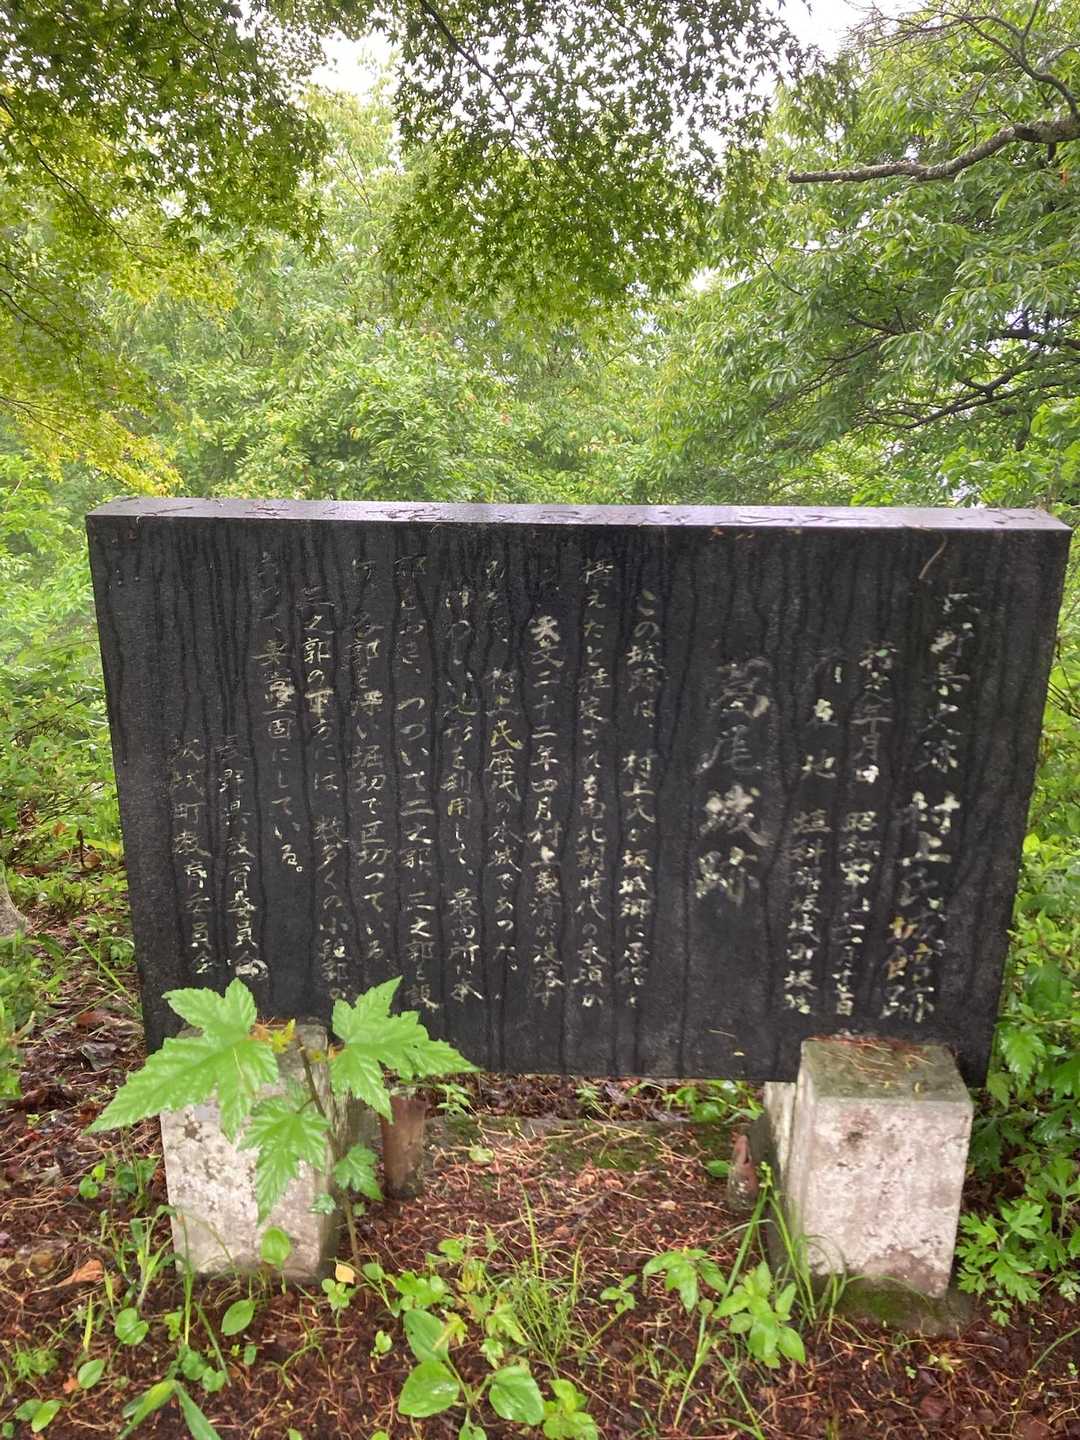 長野県史跡 村上氏城館跡
指定年月日 昭和
所在地 埴科郡坂城町坂城
葛尾城跡
この城跡は、村上氏が坂城郷に居館を
構えたと推定される南北朝時代の末頃か
天文二十二年四月村上義清が没落す
村上氏歴代の本城であった。
地形を利用して、最高所に本
郭をおき、つづいて二之郭、三之郭を設
け、各郭を深い堀切で区切っている。
三之郭の下方には、数多くの小段郭が
あって要害を固にしている。
長野県教育委員会
坂城町教育委員会